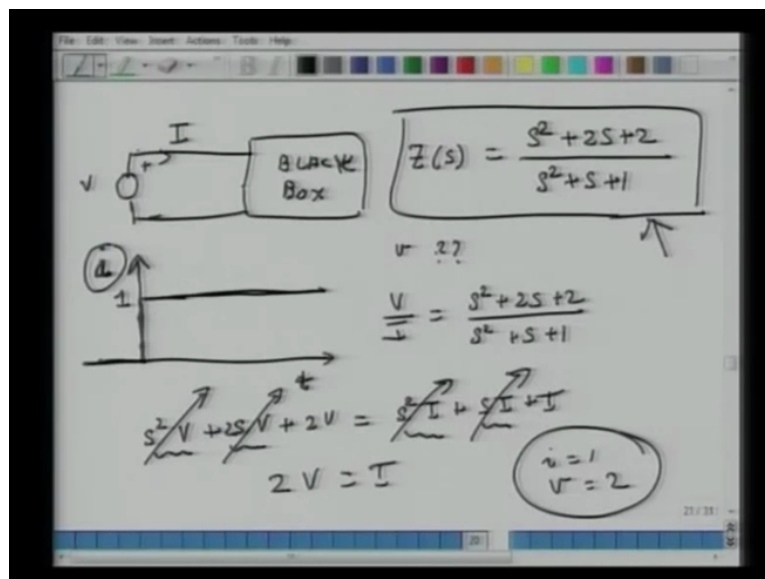 File Edit View Insert Actions Tools Help
I
V + BLACK BOX
Z(s) = (s² + 2s + 2) / (s² + s + 1)
v ??
i
1
t
V/I = (s² + 2s + 2) / (s² + s + 1)
s²V + 2sV + 2V = s²I + sI + I
2V = I
i = 1
v = 2
21 / 31
20